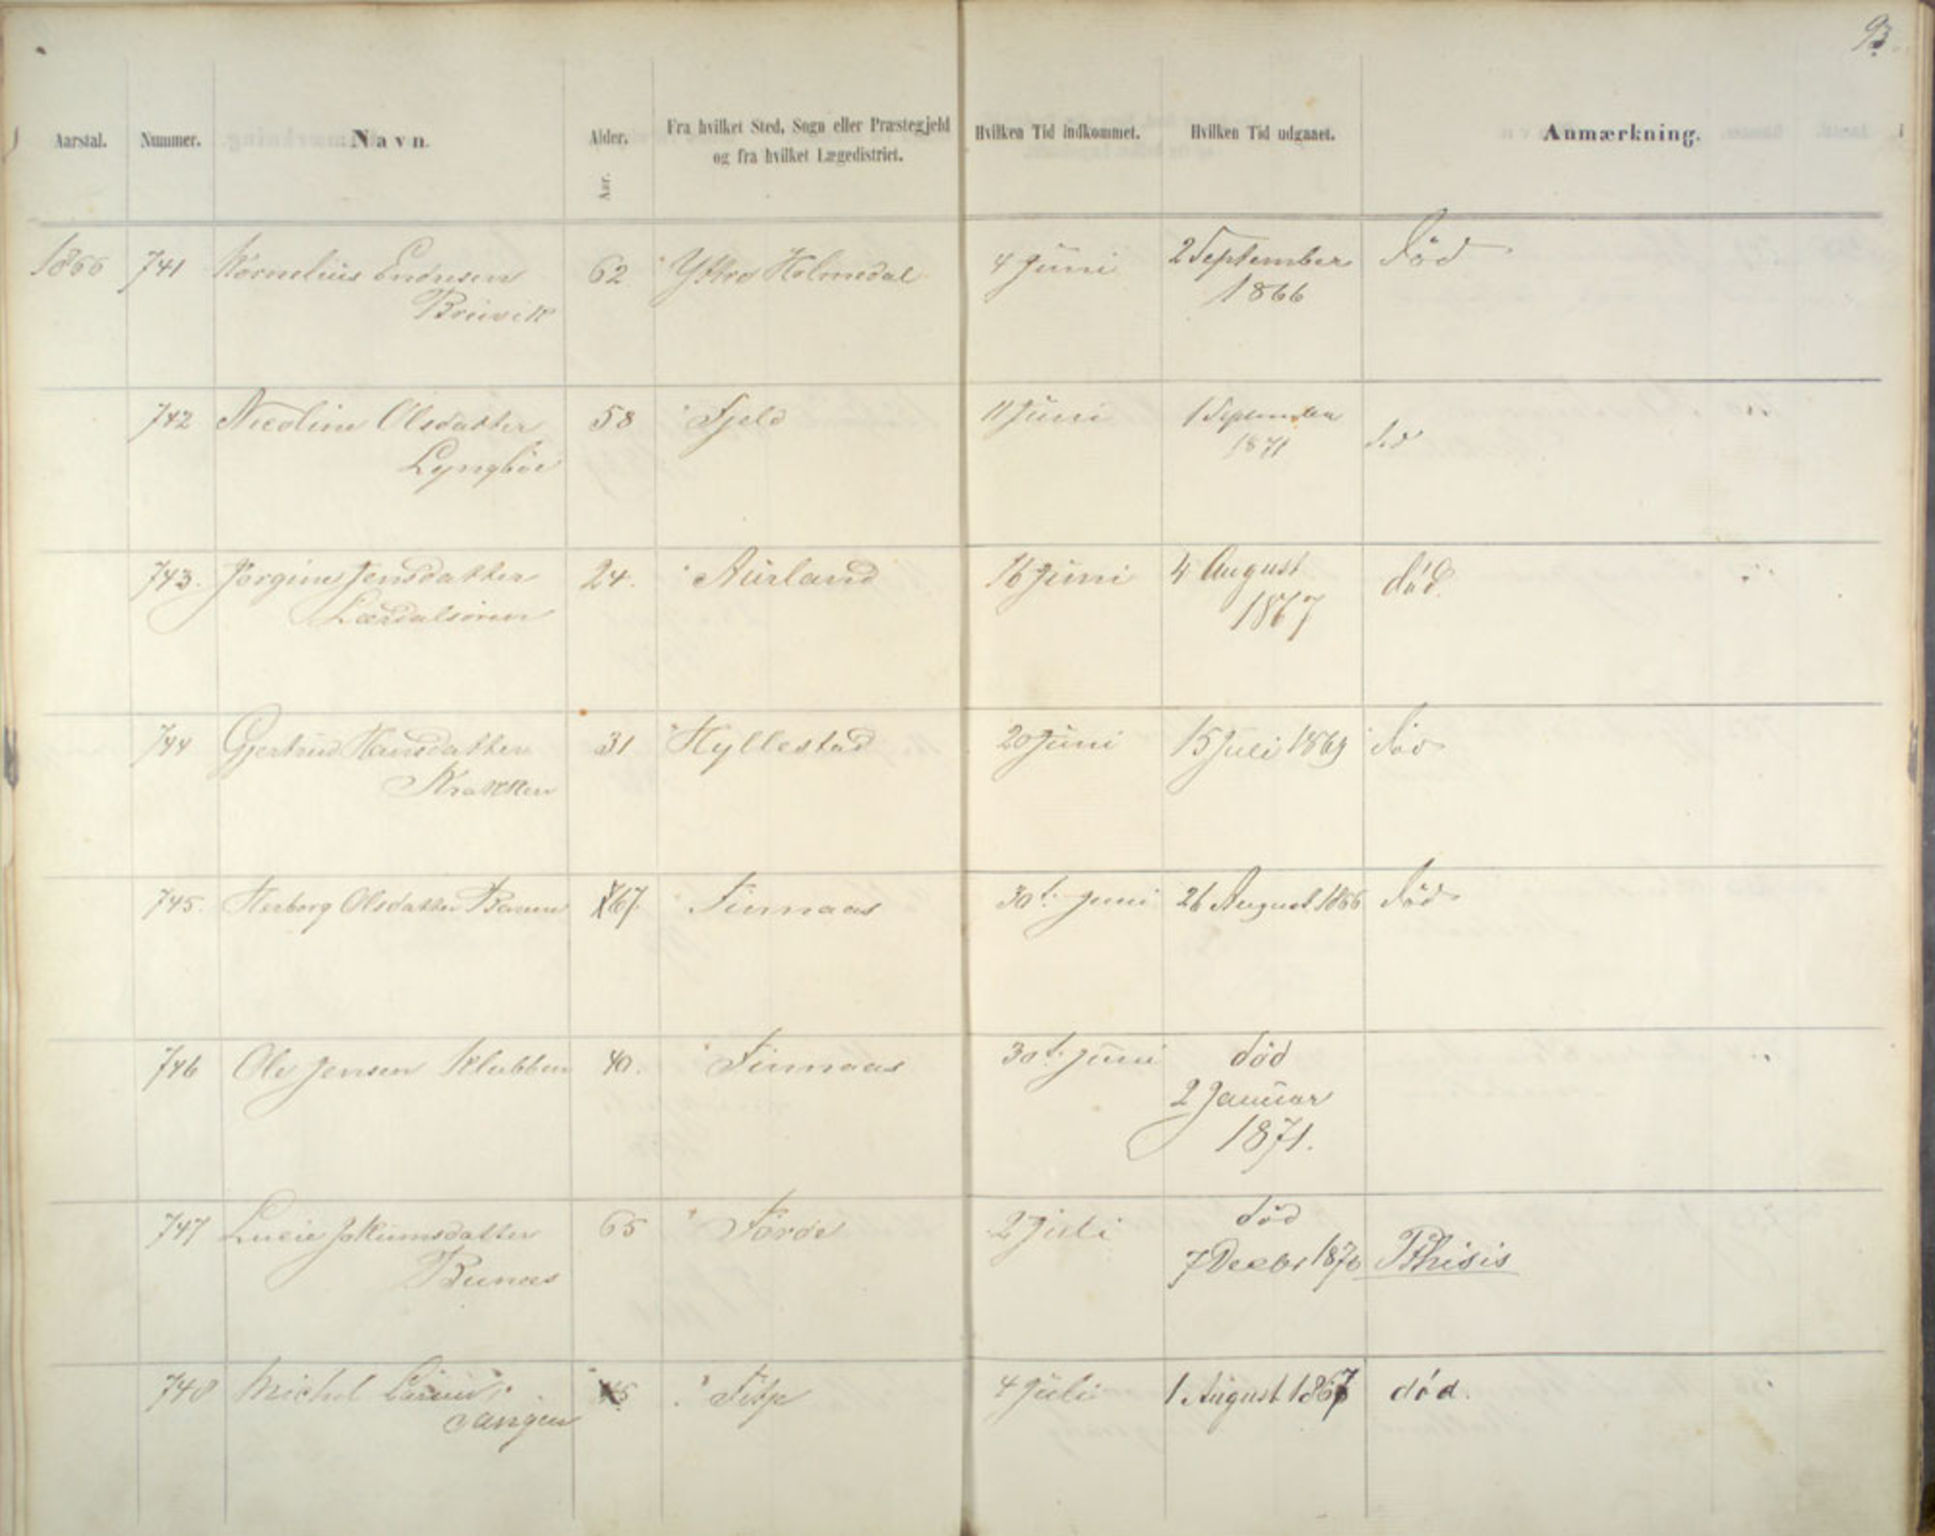 93.
Aarstal. Nummer. Navn. Alder. Aar. Fra hvilket Sted, Sogn eller Præstegjeld og fra hvilket Lægedistrict. Hvilken Tid indkommet. Hvilken Tid udgaaet. Anmærkning.
1866 741 Kornelius Endresen 62 Yttre Holmedal 4 Juni 2 September død
Breivik 1866
742 Nicoline Olsdatter 58 " Fjeld 11 Juni 1 September
Lyngböe 1871 död
743. Jörgine Jensdatter 24. " Aurland 16 Juni 4 August död.
Lærdalsören 1867
744 Gjertrud Hansdatter 31 " Hyllestad 20 Juni 15 Juli 1869 död
Krakken
745. Herborg Olsdatter 67. " Finnaas 30te Juni 26 August 1866 död
746 Ole Jensen Klubben 40. " Finnaas 30te Juni död
2 Januar
1871.
747 Lucie Jokumsdatter 65 " Förde 2 Juli död
7 Decbr 1870 Pthisis
748 Michel 45 " Fitje 4 Juli 1 August 1867 död.